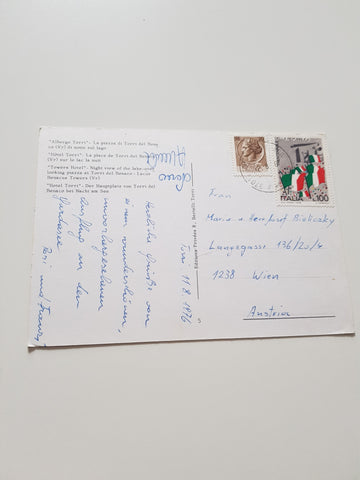 "Albergo Torri"- La piazza di Torri del Bena
co (Vr) di notte sul lago
"Hôtel Torri"- La place de Torri del Benaco
(Vr) sur le lac la nuit
"Towers Hotel"- Night view of the lake over
looking piazza at Torri del Benaco - Lacus
Benacus Towers (Vr)
"Hotel Torri"- Der Hauptplatz von Torri del
Benaco bei Nacht am See
Torri 11.8.1976
Herzliche Grüße von
einem wunderschönen,
unvorhergesehenen
Ausflug an den
Gardasee
Resi und Franz
ITALIA
L.100
Frau
Maria u. Manfred
Langegasse 136/20/4
1238 Wien
Austria